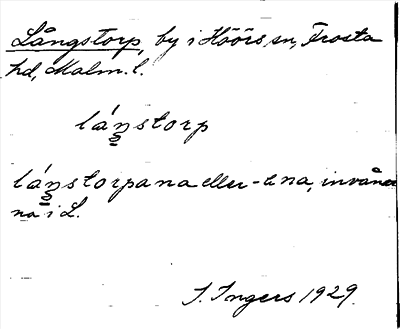 Långstorp, by i Höörs sn, Frosta
hd, Malm. l.
lánstorp
lánstorpana eller -ena, invånar
na i L.
I. Ingers 1929.